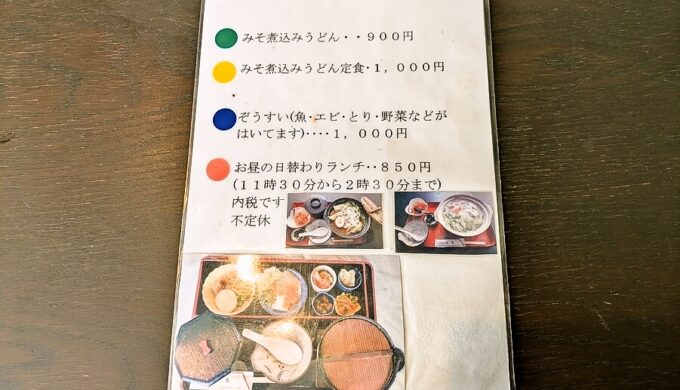 みそ煮込みうどん・・９００円
みそ煮込みうどん定食・１，０００円
ぞうすい(魚・エビ・とり・野菜などが
はいてます)‥‥１，０００円
お昼の日替わりランチ‥８５０円
(１１時３０分から２時３０分まで)
内税です
不定休